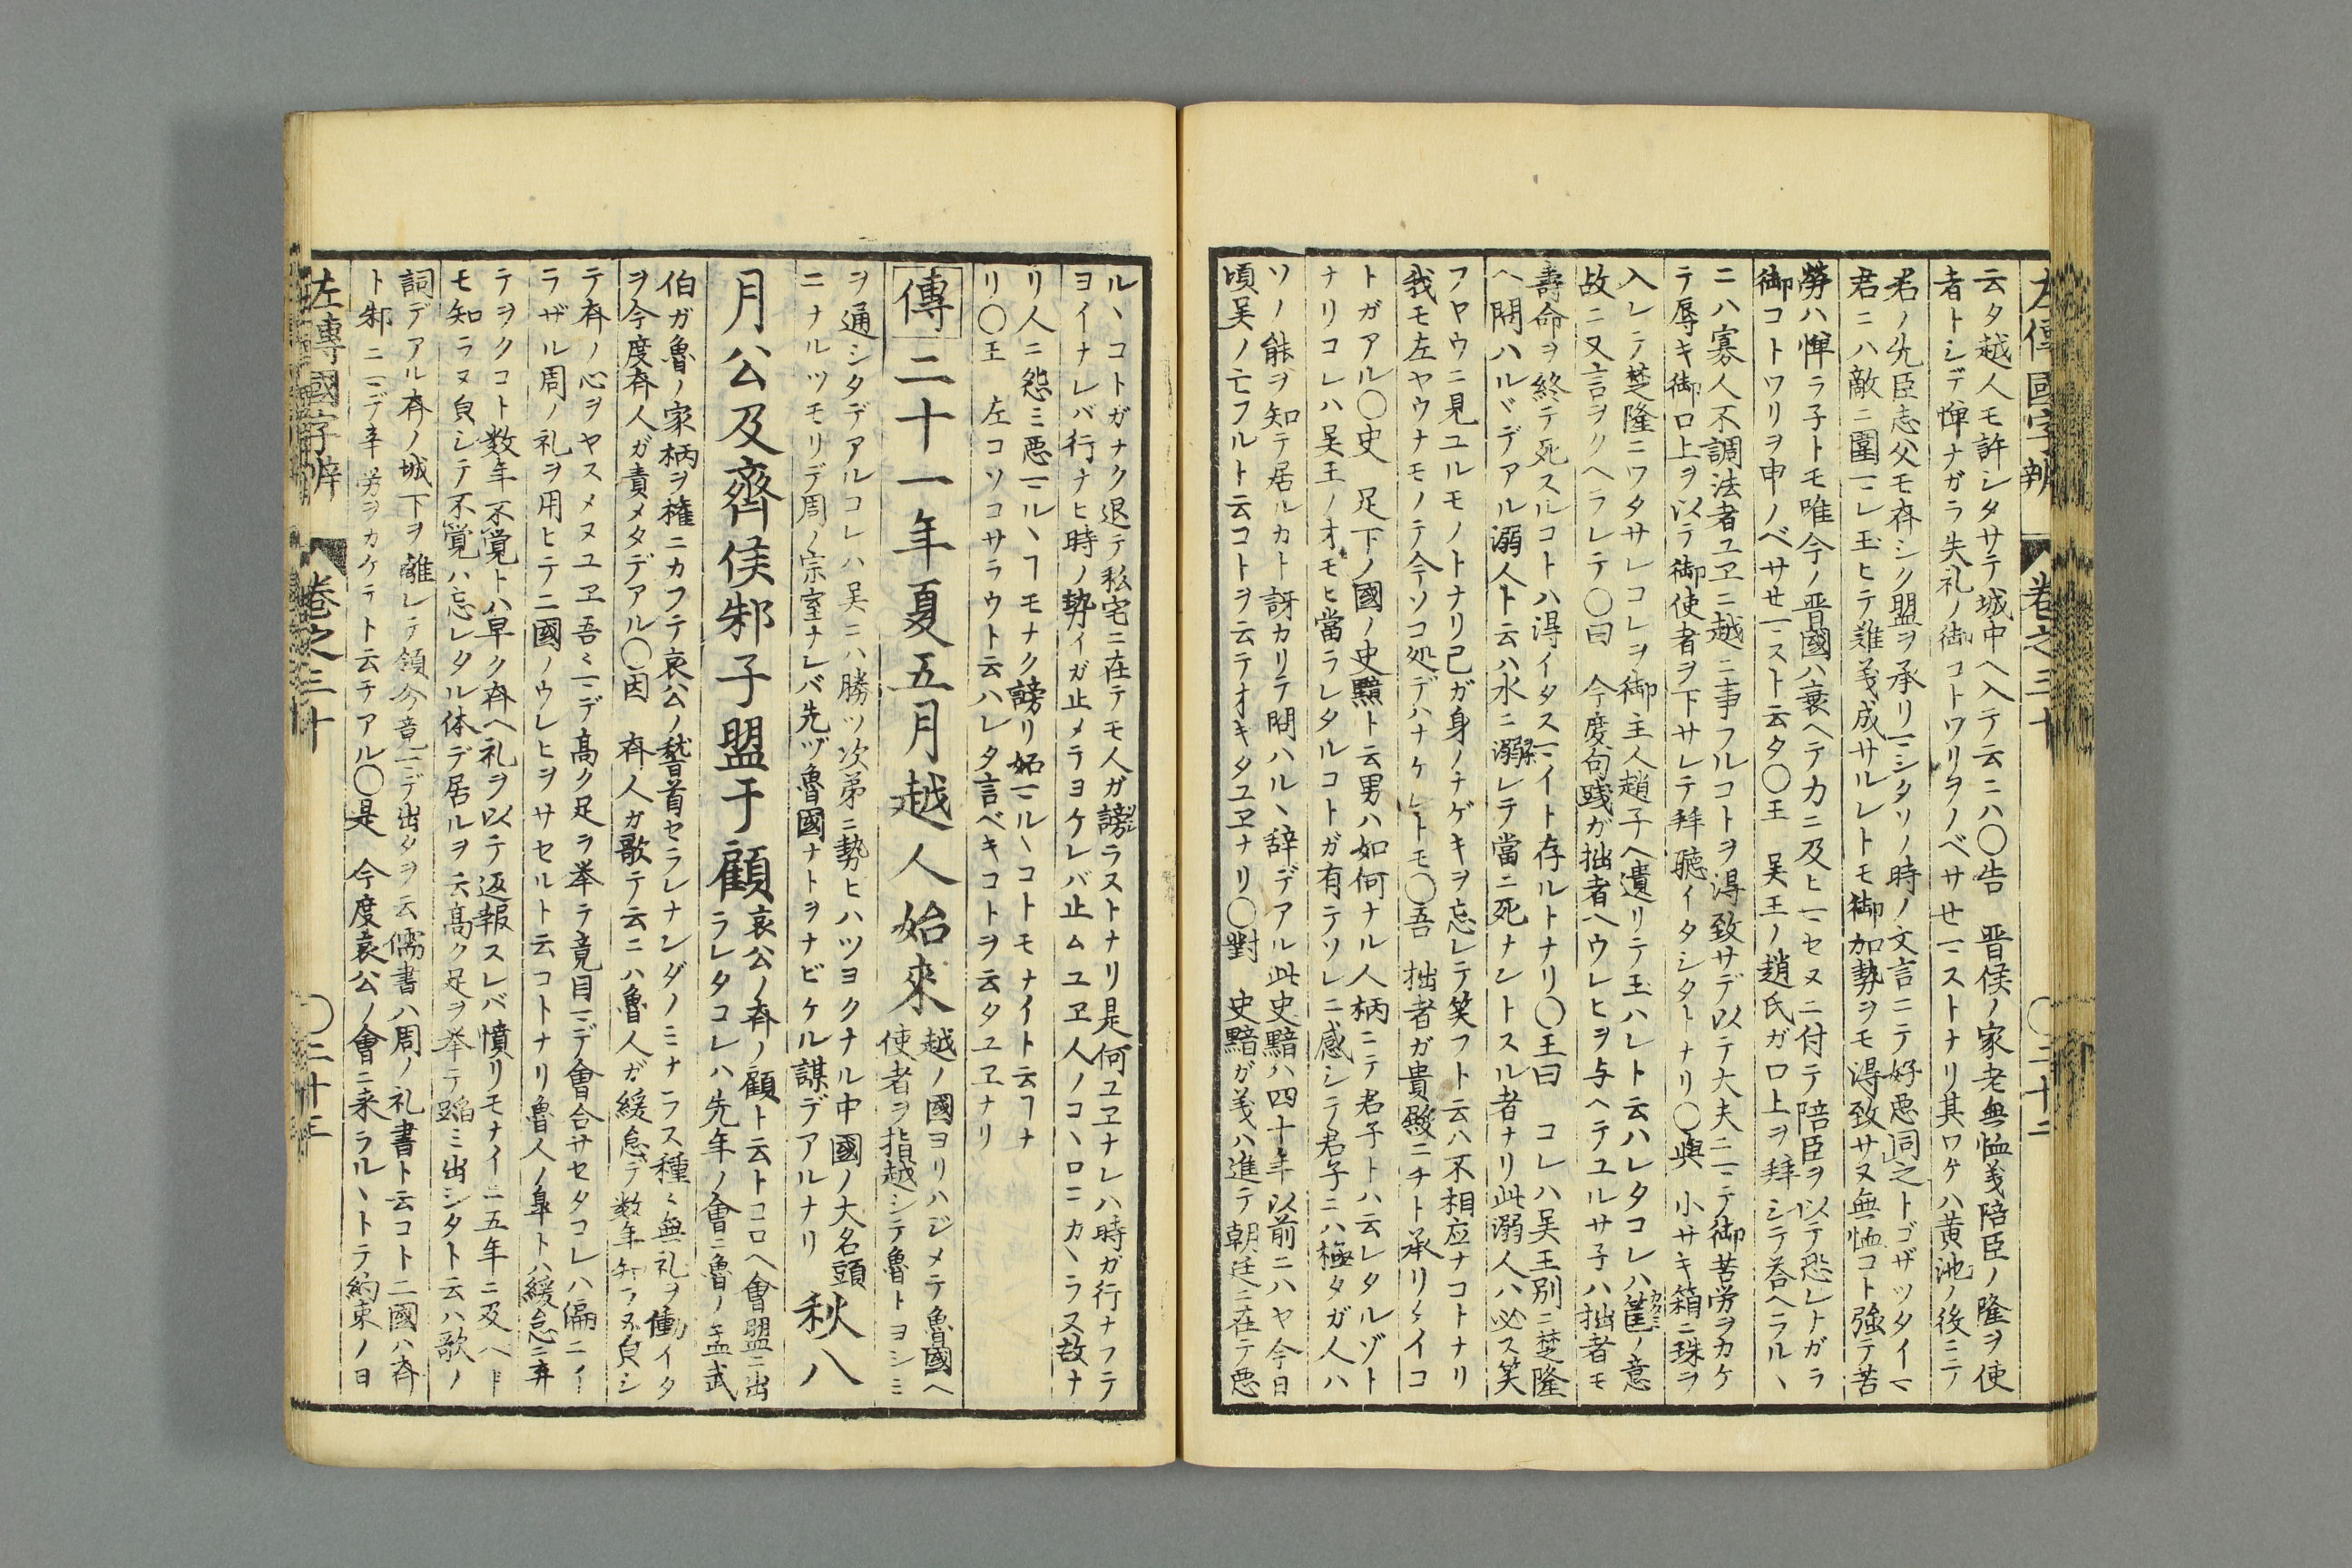 左傳國字辨 卷之三十 ○二十二
云タ越人モ許シタサテ城中ヘ入テ云ニハ○告 晋侯ノ家老無恤義陪臣ノ隆ヲ使
者トシデ憚ナガラ失礼ノ御コトワリヲノベサセマストナリ其ワケハ黄池ノ後ニテ
君ノ先臣志父モ斉シク盟ヲ承リマシタソノ時ノ文言ニテ好悪同之トゴザツタイマ
君ニハ敵ニ圍マレ玉ヒテ難義成サルレトモ御加勢ヲモ得致サヌ無恤コト強テ苦
勞ハ憚ラ子トモ唯今ノ晋國ハ衰ヘテ力ニ及ヒマセヌニ付テ陪臣ヲ以テ恐レトガラ
御コトワリヲ申ノベサセマスト云タ○王 吴王ノ趙氏ガ口上ヲ拜シテ荅ヘラルヽ
ニハ寡人不調法者ユヱニ越ニ事フルコトヲ得致サデ以テ大夫ニマテ御苦労ヲカケ
テ辱キ御口上ヲ以テ御使者ヲ下サレテ拜聴イタシタトナリ○與 小サキ箱ニ珠ヲ
入レテ楚隆ニワタサレコレヲ御主人趙子ヘ遺リテ玉ハレト云ハレタコレハ筐ノ意
故ニ又言ヲクヘラレテ○曰 今度句踐ガ拙者ヘウレヒヲ与ヘテユルサ子ハ拙者モ
壽命ヲ終テ死スルコトハ得イタスマイト存ルトナリ○王曰 コレハ吴王別ニ楚隆
ヘ問ハルヽデアル溺人ト云ハ水ニ溺レテ當ニ死ナントスル者ナリ此溺人ハ必ス笑
フヤウニ見ユルモノトナリ己ガ身ノナゲキヲ忘レテ笑フト云ハ不相応ナコトナリ
我モ左ヤウナモノテ今ソコ処デハナケレトモ○吾 拙者ガ貴殿ニチト承リタイコ
トガアル○史 足下ノ國ノ史黯ト云男ハ如何ナル人柄ニテ君子トハ云レタルゾト
ナリコレハ吴王ノオモヒ當ラレタルコトガ有テソレニ感シテ君子ニハ極タガ人ハ
ソノ能ヲ知テ居ルカト訝カリテ問ハルヽ辞デアル此史黯ハ四十年以前ニハヤ今日
頃吴ノ亡フルト云コトヲ云テオキタユヱナリ○對 史黯ガ義ハ進テ朝廷ニ在テ悪
ルヽコトガナク退テ私宅ニ在テモ人ガ謗ラストナリ是何ユヱナレハ時ガ行ナフテ
ヨイナレバ行ナヒ時ノ勢イガ止メテヨケレバ止ムユヱ人ノコヽロニカヽラヌ故ナ
リ人ニ怨ミ悪マルヽヿモナク謗リ妬マルヽコトモナイト云ヿナ
リ○王 左コソコサラウト云ハレタ言ベキコトヲ云タユヱナリ
傳二十一年夏五月越人始來 越ノ國ヨリハジメテ魯國ヘ
使者ヲ指越シテ魯トヨシミ
ヲ通シタデアルコレハ吴ニハ勝ツ次第ニ勢ヒハツヨクナル中國ノ大名頭
ニナルツモリデ周ノ宗室ナレバ先ヅ魯國ナトヲナビケル謀デアルナリ 秋八
月公及齊侯邾子盟于顧 哀公ノ斉ノ顧ト云トコロヘ會盟ニ出
ラレタコレハ先年ノ會ニ魯ノ孟武
伯ガ魯ノ家柄ヲ権ニカフテ哀公ノ稽首セラレナンダノミナラス種々無礼ヲ働イタ
ヲ今度斉人ガ責メタデアル○因 斉人ガ歌テ云ニハ魯人ガ緩怠テ数年知ラヌ㒵シ
テ斉ノ心ヲヤスメヌユヱ吾々マデ高ク足ヲ挙テ竟目マデ會合サセタコレハ偏ニイ
ラザル周ノ礼ヲ用ヒテ二國ノウレヒヲサセルト云コトナリ魯人ノ皐トハ緩怠ニ弃
テヲクコト数年不覚トハ早ク斉ヘ礼ヲ以テ返報スレバ憤リモナイニ五年ニ及ヘド
モ知ラヌ㒵シテ不覚ハ忘レタル体デ居ルヲ云高ク足ヲ挙テ蹈ミ出シタト云ハ歌ノ
詞デアル斉ノ城下ヲ離レテ領分竟マデ出タヲ云儒書ハ周ノ礼書ト云コト二國ハ斉
ト邾ニマデ辛労ヲカケテト云テアル○是 今度哀公ノ會ニ来ラルヽトテ約束ノ日
左傳國字辨 卷之三十 ○二十三